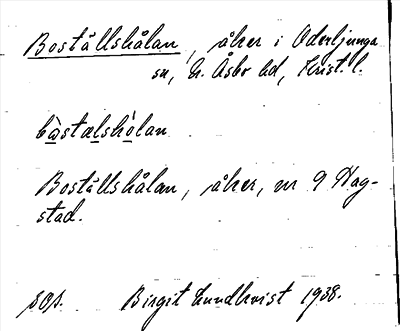 Boställshålan, åker i Oderljunga
sn, N. Åsbo hd, Krist. l.
bàstælshòlan
Boställshålan, åker, nr 9 Hag-
stad.
SOS. Birgit Lundkvist 1938.